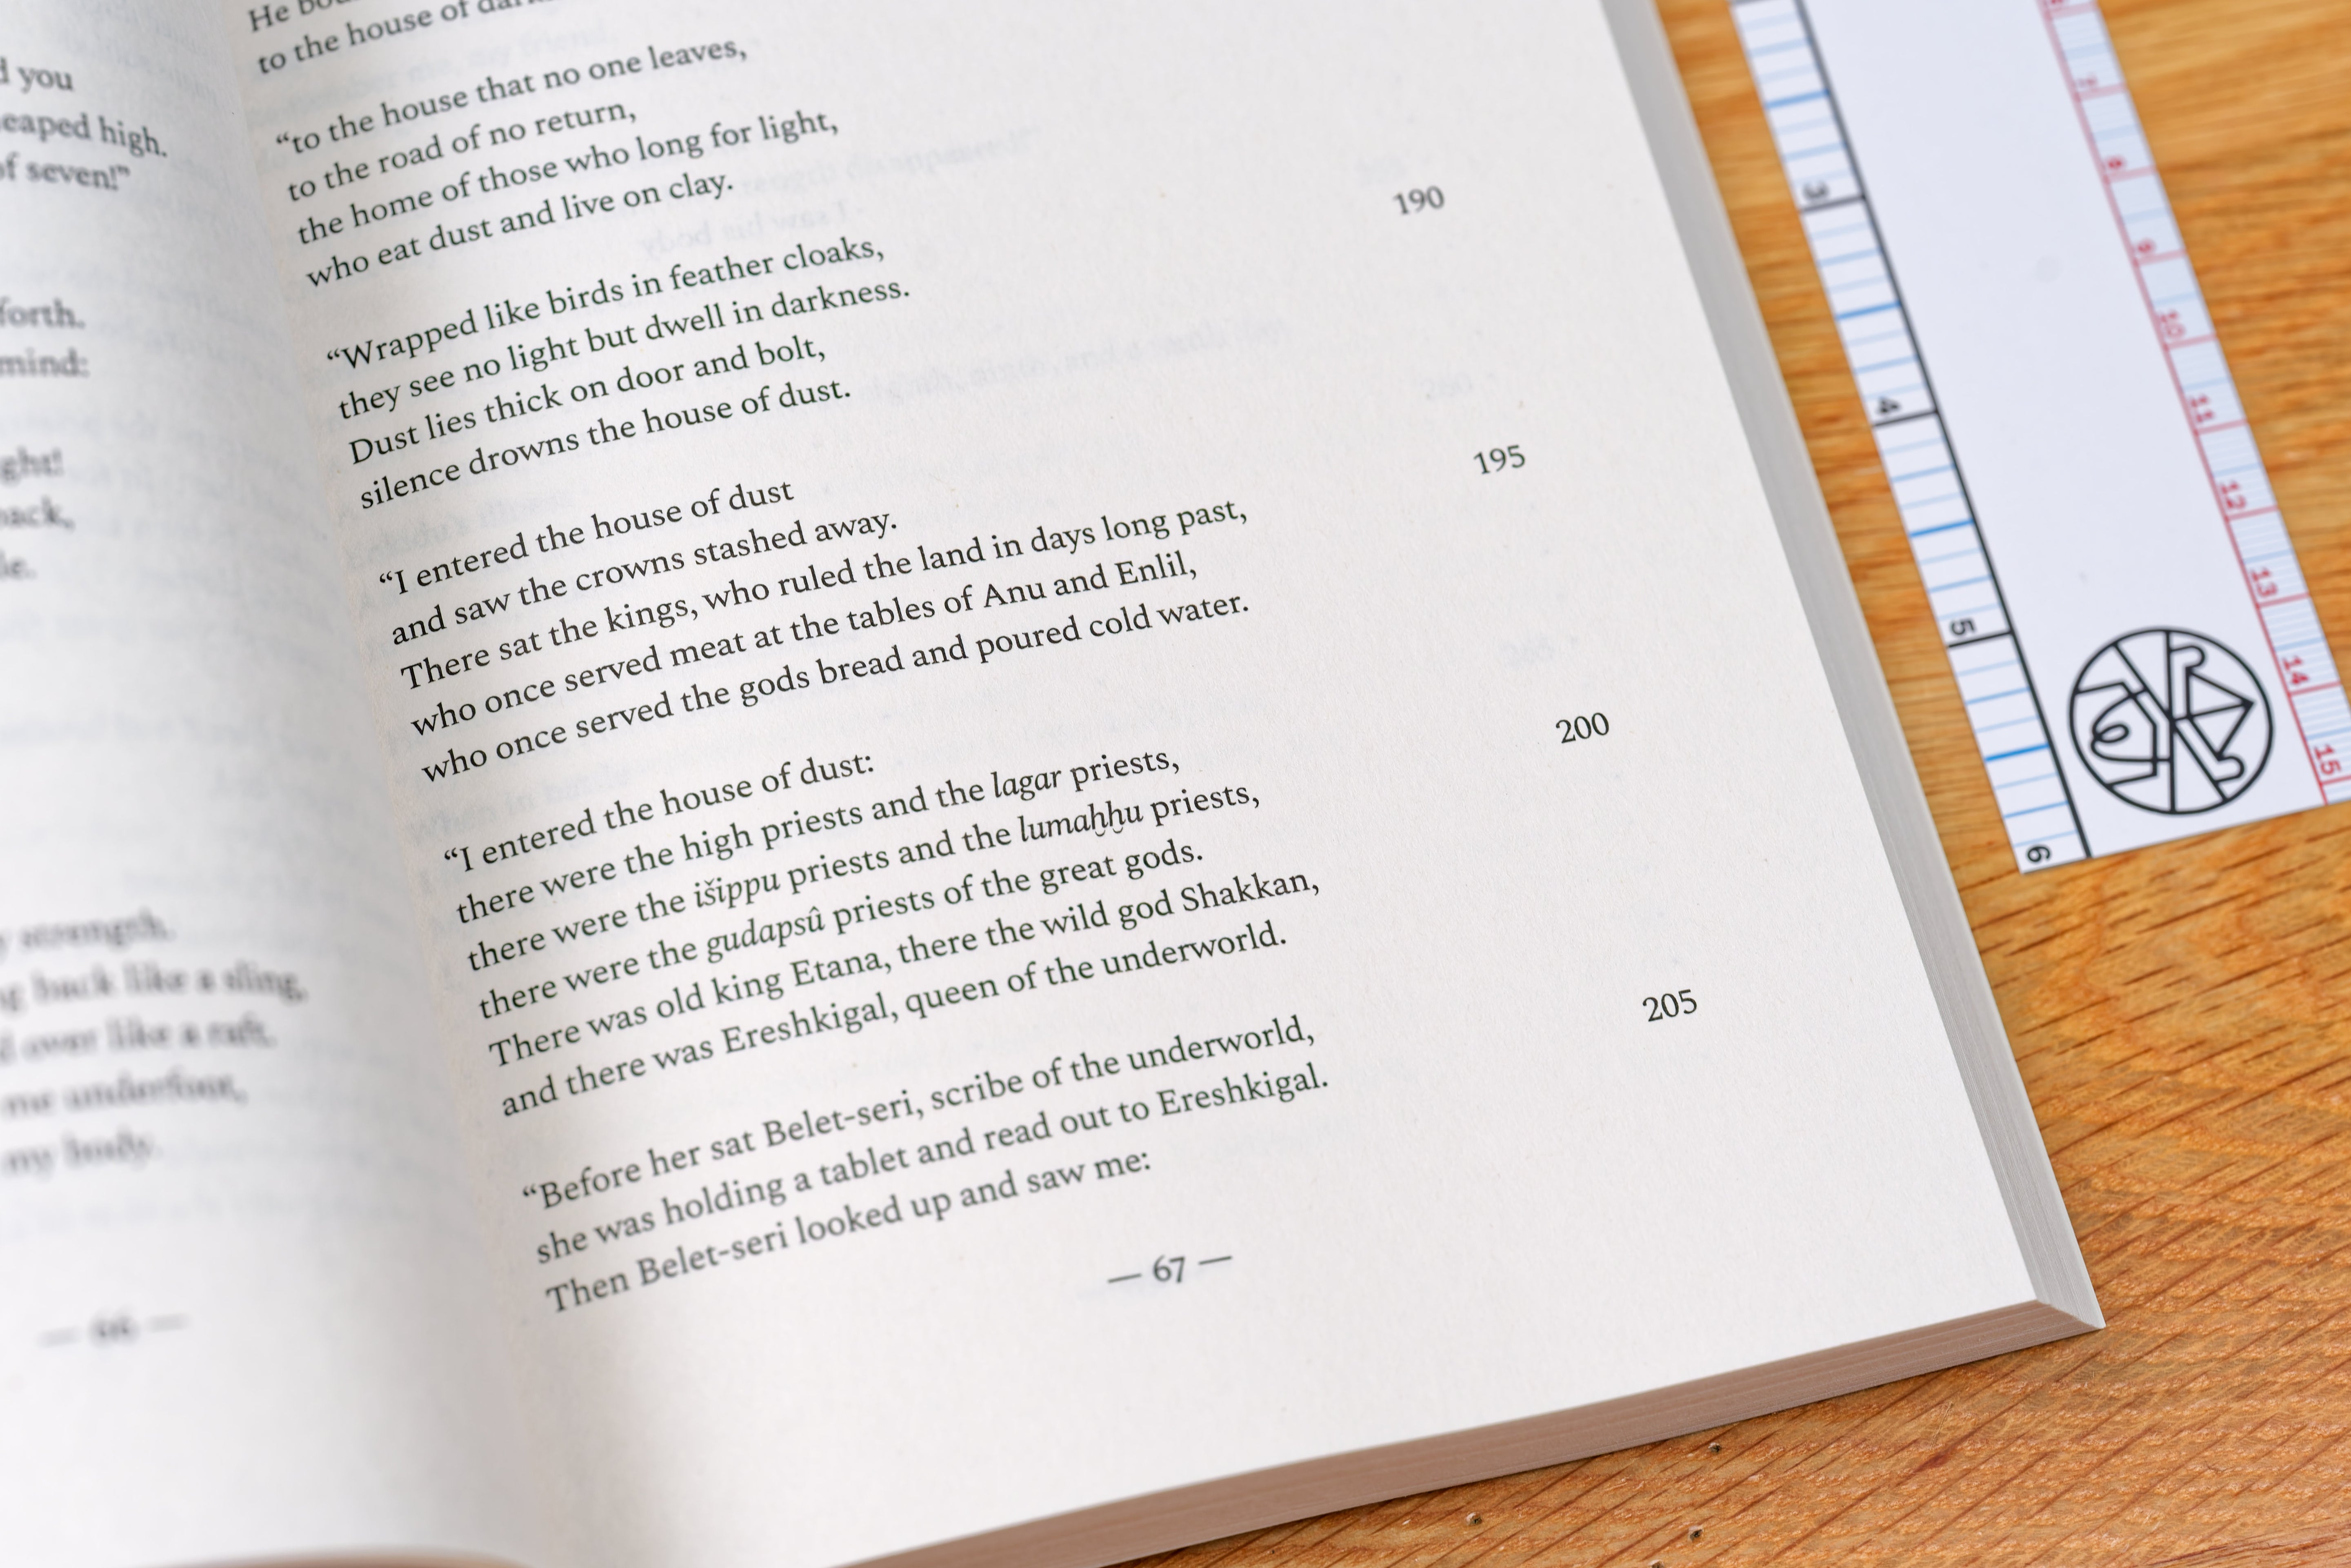 d you
eaped high.
of seven!”
forth.
mind:
ght!
back,
le.
strength.
back like a sling,
over like a raft,
me underfoot,
my body.
— 66 —
He
to the house of
“to the house that no one leaves,
to the road of no return,
the home of those who long for light,
who eat dust and live on clay. 190
“Wrapped like birds in feather cloaks,
they see no light but dwell in darkness.
Dust lies thick on door and bolt,
silence drowns the house of dust.
“I entered the house of dust 195
and saw the crowns stashed away.
There sat the kings, who ruled the land in days long past,
who once served meat at the tables of Anu and Enlil,
who once served the gods bread and poured cold water.
“I entered the house of dust: 200
there were the high priests and the lagar priests,
there were the išippu priests and the lumaḫḫu priests,
there were the gudapsû priests of the great gods.
There was old king Etana, there the wild god Shakkan,
and there was Ereshkigal, queen of the underworld. 205
“Before her sat Belet-seri, scribe of the underworld,
she was holding a tablet and read out to Ereshkigal.
Then Belet-seri looked up and saw me:
— 67 —
3
4
5
6
7
8
9
10
11
12
13
14
15